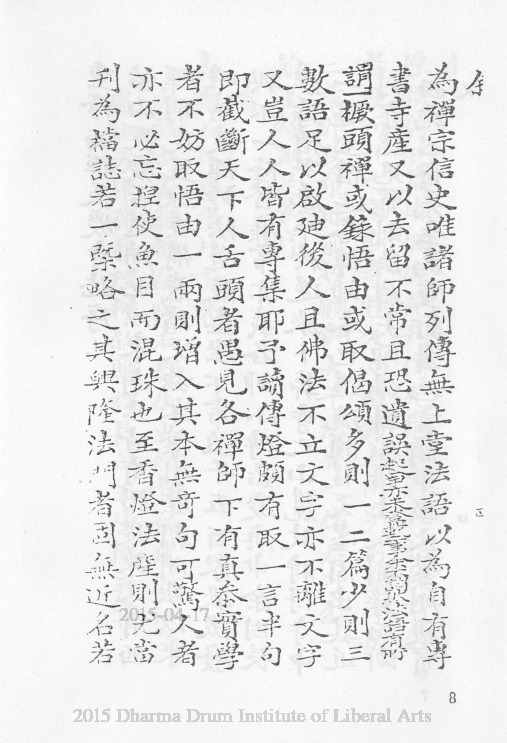 為禪宗信史唯諸師列傳無上堂法語以為自有專
書寺產又以去留不常且恐遺誤
謂橛頭禪或錄悟由或取偈頌多則一二篇少則三
數語足以啟廸後人且佛法不立文字亦不離文字
又豈人人皆有專集耶予讀傳燈頗有取一言半句
即截斷天下人舌頭者愚見各禪師下有真叅實學
者不妨取悟由一兩則增入其本無奇句可驚人者
亦不必妄捏使魚目而混珠也至香燈法產則尤當
刊為檔誌若一槩略之其興隆法門者固無近名若
2015-04-17
8
2015 Dharma Drum Institute of Liberal Arts